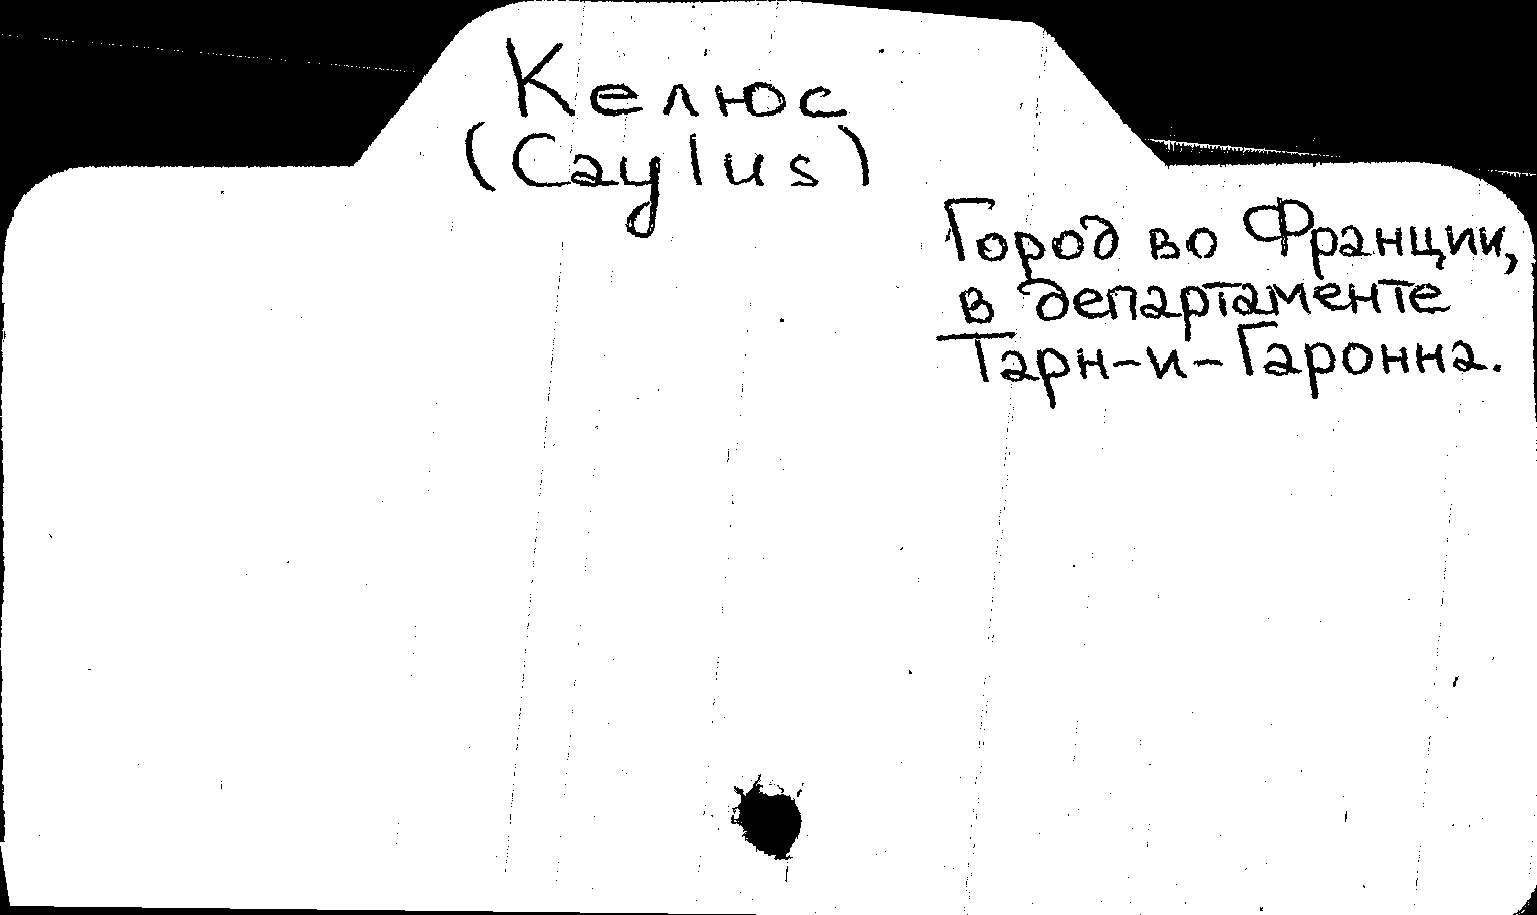 Келюс
(Caylus)
Город во Франции,
в департаменте
Тарн-и-Гаронна.